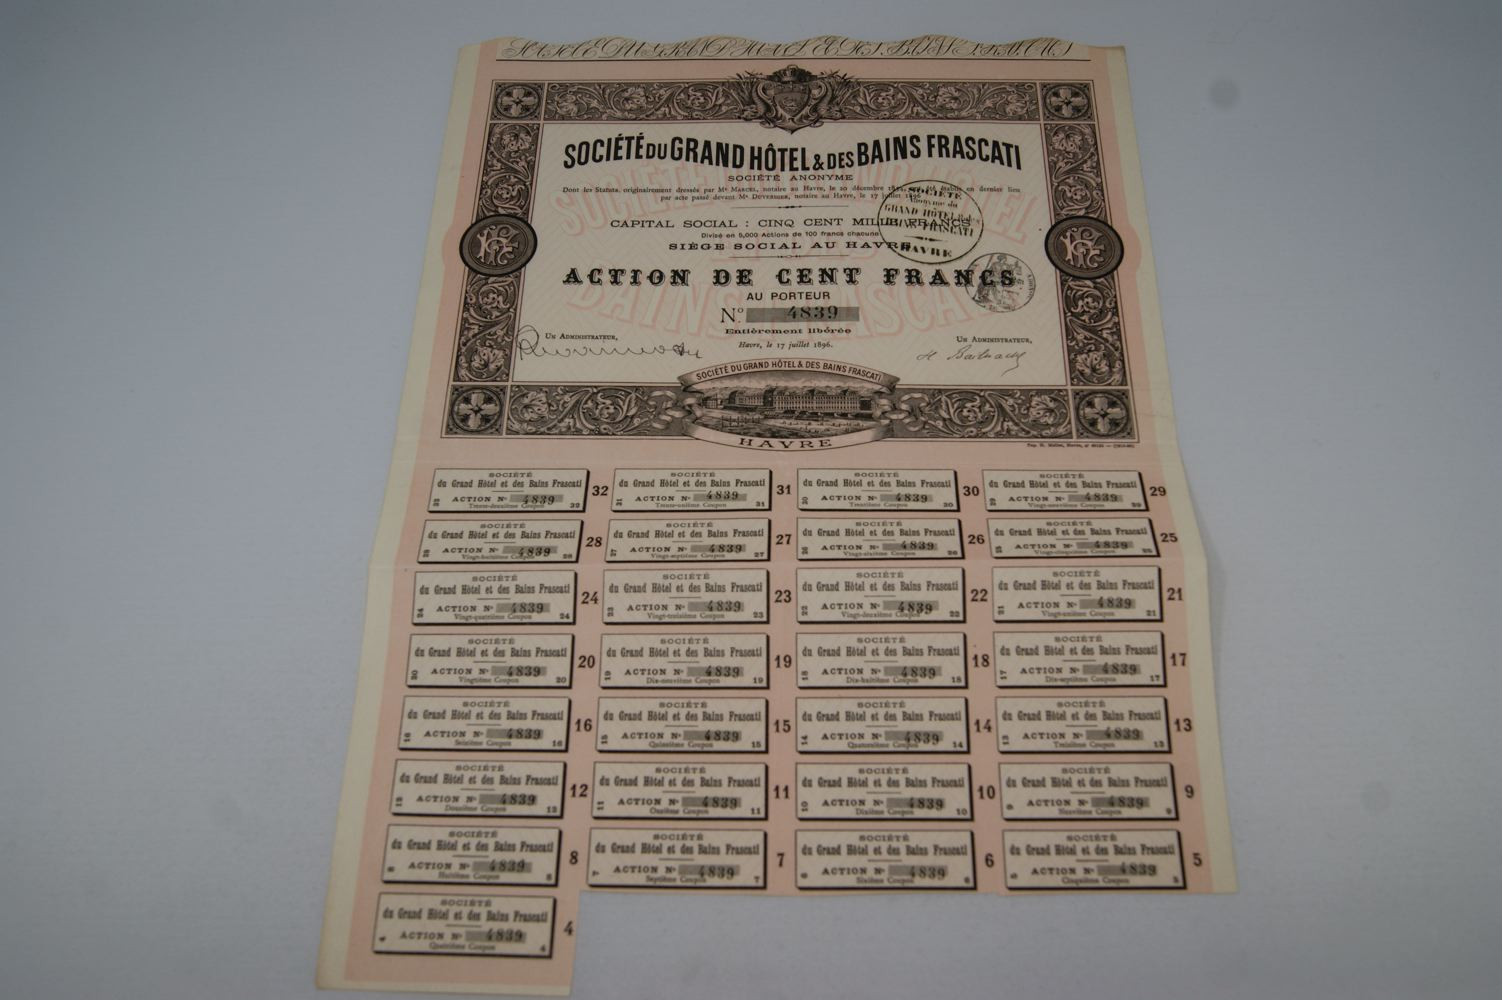 SOCIÉTÉ DU GRAND HÔTEL & DES BAINS FRASCATI
SOCIÉTÉ ANONYME
Dont les Statuts, originairement dressés par Me MARCEL, notaire au Havre, le 20 décembre ont été établis en dernier lieu
par acte passé devant Me DUVERGER, notaire au Havre, le 17 juillet 1896
CAPITAL SOCIAL : CINQ CENT MILLE FRANCS
Divisé en 5,000 Actions de 100 francs chacune
SIÈGE SOCIAL AU HAVRE
SOCIÉTÉ
Anonyme du
GRAND HÔTEL & des
BAINS FRASCATI
HAVRE
ACTION DE CENT FRANCS
AU PORTEUR
No 4839
Entièrement libérée
Havre, le 17 juillet 1896.
UN ADMINISTRATEUR,
UN ADMINISTRATEUR,
SOCIÉTÉ DU GRAND HÔTEL & DES BAINS FRASCATI
HAVRE
SOCIÉTÉ
du Grand Hôtel et des Bains Frascati
ACTION No 4839
32 Trente-deuxième Coupon 32
32
SOCIÉTÉ
du Grand Hôtel et des Bains Frascati
ACTION No 4839
31 Trente-unième Coupon 31
31
SOCIÉTÉ
du Grand Hôtel et des Bains Frascati
ACTION No 4839
30 Trentième Coupon 30
30
SOCIÉTÉ
du Grand Hôtel et des Bains Frascati
ACTION No 4839
29 Vingt-neuvième Coupon 29
29
SOCIÉTÉ
du Grand Hôtel et des Bains Frascati
ACTION No 4839
28 Vingt-huitième Coupon 28
28
SOCIÉTÉ
du Grand Hôtel et des Bains Frascati
ACTION No 4839
27 Vingt-septième Coupon 27
27
SOCIÉTÉ
du Grand Hôtel et des Bains Frascati
ACTION No 4839
26 Vingt-sixième Coupon 26
26
SOCIÉTÉ
du Grand Hôtel et des Bains Frascati
ACTION No 4839
25 Vingt-cinquième Coupon 25
25
SOCIÉTÉ
du Grand Hôtel et des Bains Frascati
ACTION No 4839
24 Vingt-quatrième Coupon 24
24
SOCIÉTÉ
du Grand Hôtel et des Bains Frascati
ACTION No 4839
23 Vingt-troisième Coupon 23
23
SOCIÉTÉ
du Grand Hôtel et des Bains Frascati
ACTION No 4839
22 Vingt-deuxième Coupon 22
22
SOCIÉTÉ
du Grand Hôtel et des Bains Frascati
ACTION No 4839
21 Vingt-unième Coupon 21
21
SOCIÉTÉ
du Grand Hôtel et des Bains Frascati
ACTION No 4839
20 Vingtième Coupon 20
20
SOCIÉTÉ
du Grand Hôtel et des Bains Frascati
ACTION No 4839
19 Dix-neuvième Coupon 19
19
SOCIÉTÉ
du Grand Hôtel et des Bains Frascati
ACTION No 4839
18 Dix-huitième Coupon 18
18
SOCIÉTÉ
du Grand Hôtel et des Bains Frascati
ACTION No 4839
17 Dix-septième Coupon 17
17
SOCIÉTÉ
du Grand Hôtel et des Bains Frascati
ACTION No 4839
16 Seizième Coupon 16
16
SOCIÉTÉ
du Grand Hôtel et des Bains Frascati
ACTION No 4839
15 Quinzième Coupon 15
15
SOCIÉTÉ
du Grand Hôtel et des Bains Frascati
ACTION No 4839
14 Quatorzième Coupon 14
14
SOCIÉTÉ
du Grand Hôtel et des Bains Frascati
ACTION No 4839
13 Treizième Coupon 13
13
SOCIÉTÉ
du Grand Hôtel et des Bains Frascati
ACTION No 4839
12 Douzième Coupon 12
12
SOCIÉTÉ
du Grand Hôtel et des Bains Frascati
ACTION No 4839
11 Onzième Coupon 11
11
SOCIÉTÉ
du Grand Hôtel et des Bains Frascati
ACTION No 4839
10 Dixième Coupon 10
10
SOCIÉTÉ
du Grand Hôtel et des Bains Frascati
ACTION No 4839
9 Neuvième Coupon 9
9
SOCIÉTÉ
du Grand Hôtel et des Bains Frascati
ACTION No 4839
8 Huitième Coupon 8
8
SOCIÉTÉ
du Grand Hôtel et des Bains Frascati
ACTION No 4839
7 Septième Coupon 7
7
SOCIÉTÉ
du Grand Hôtel et des Bains Frascati
ACTION No 4839
6 Sixième Coupon 6
6
SOCIÉTÉ
du Grand Hôtel et des Bains Frascati
ACTION No 4839
5 Cinquième Coupon 5
5
SOCIÉTÉ
du Grand Hôtel et des Bains Frascati
ACTION No 4839
4 Quatrième Coupon 4
4